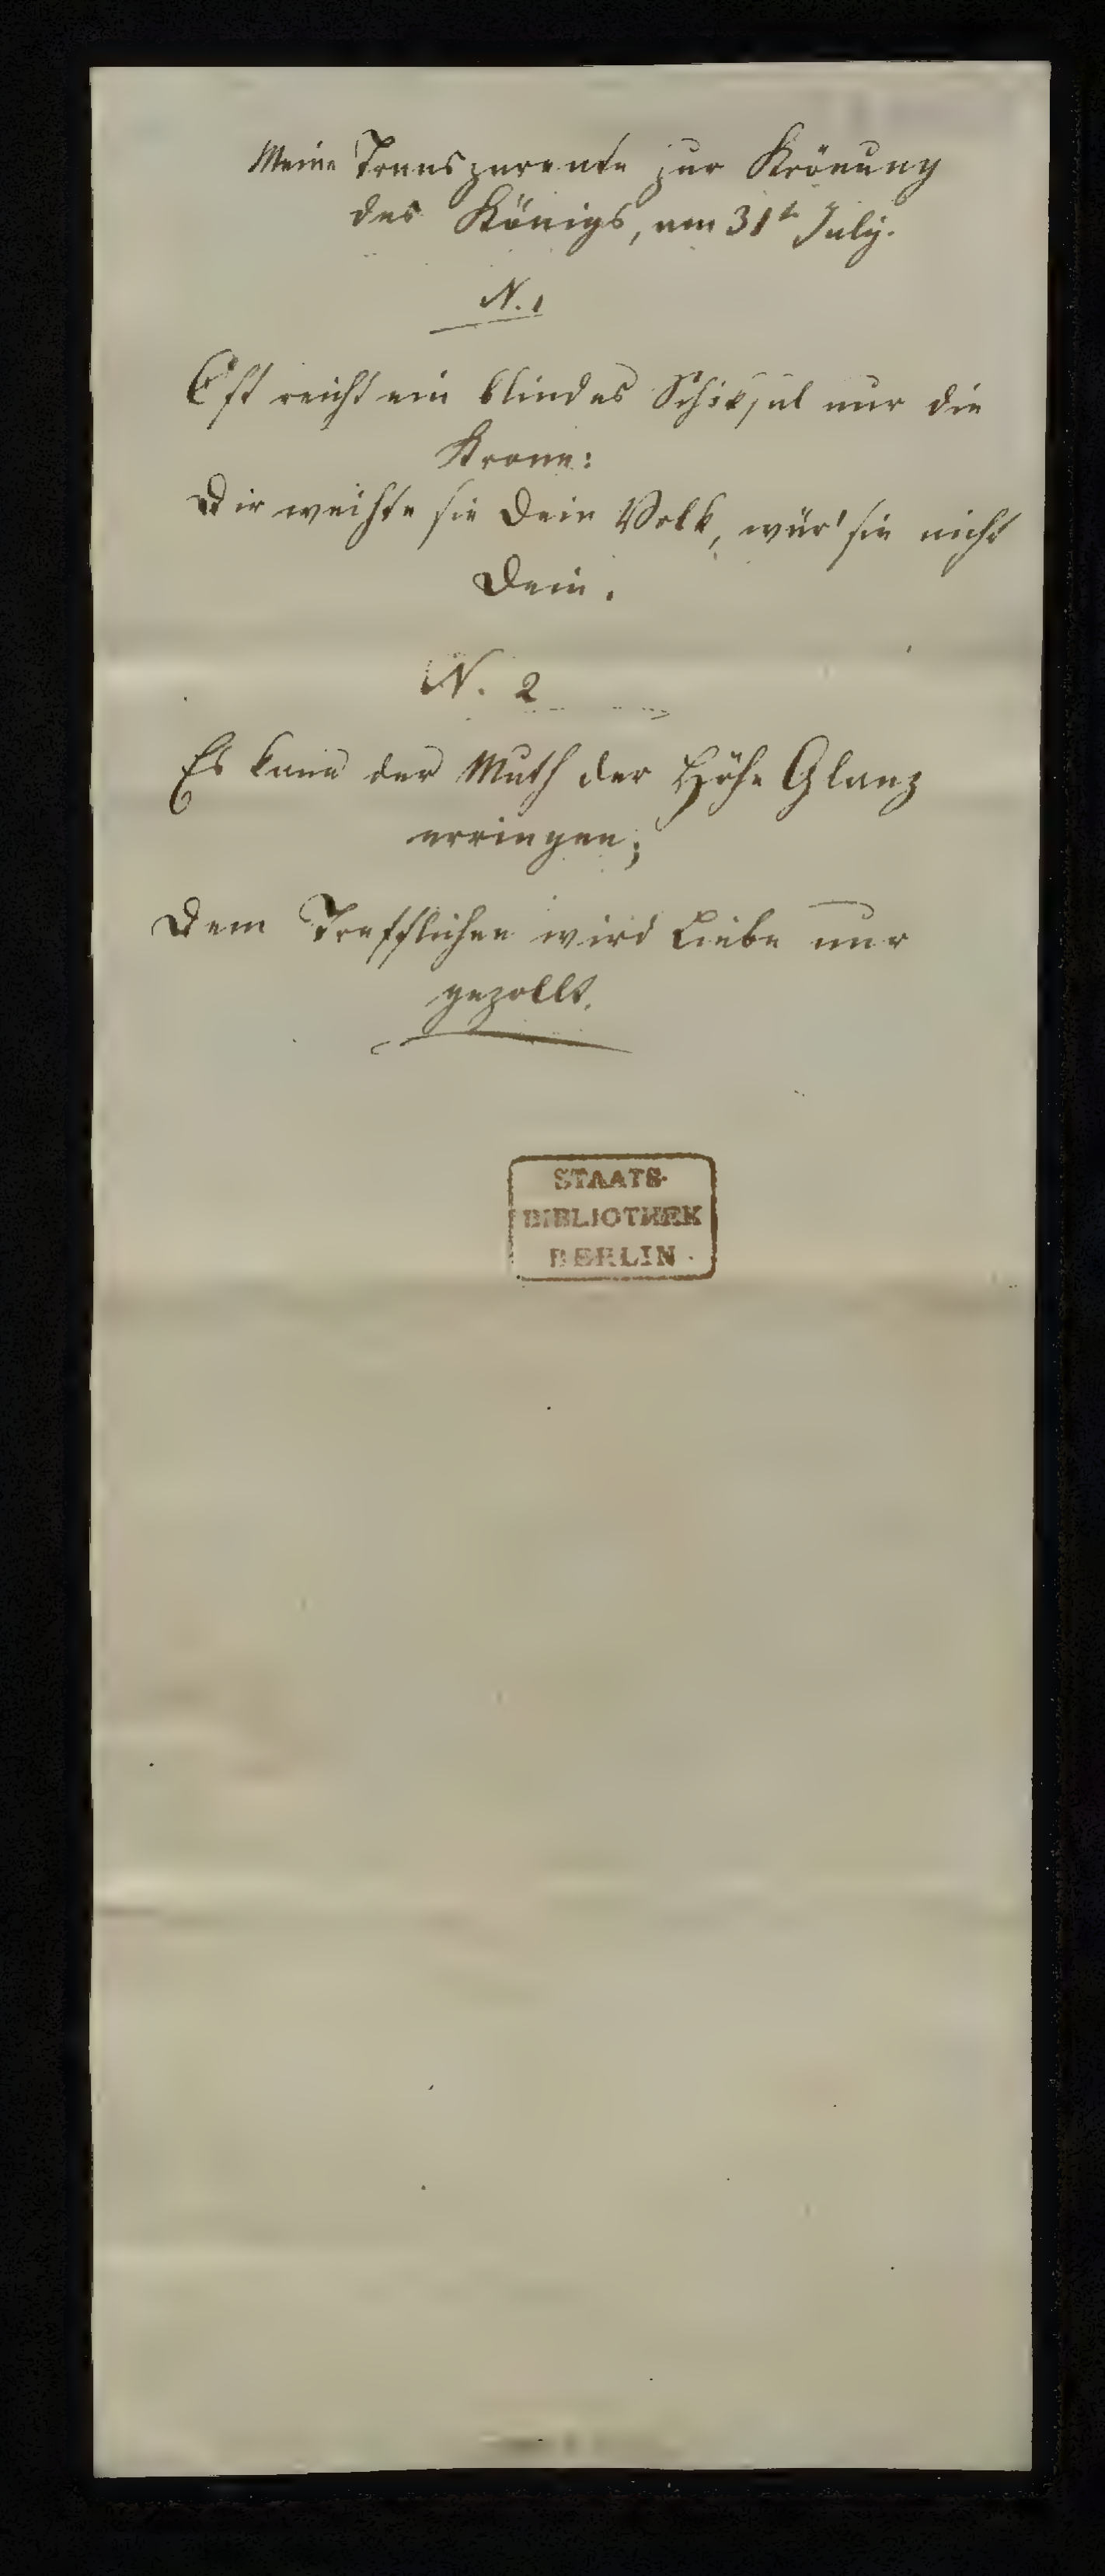 Meine Transparente zur Krönung
des Königs, am 31t July.
N. 1
Oft reicht ein blindes Schiksal nur die
Krone:
Dir weihte sie Dein Volk, wär' sie nicht
Dein.
N. 2
Es kann der Muth der Höhe Glanz
erringen;
Dem Trefflichen wird Liebe nur
gezollt.
STAATS-
BIBLIOTHEK
BERLIN